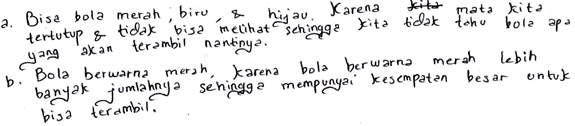 a. Bisa bola merah, biru, & hijau. Karena mata kita
tertutup & tidak bisa melihat sehingga kita tidak tahu bola apa
yang akan terambil nantinya.
b. Bola berwarna merah, karena bola berwarna merah lebih
banyak jumlahnya sehingga mempunyai kesempatan besar untuk
bisa terambil.